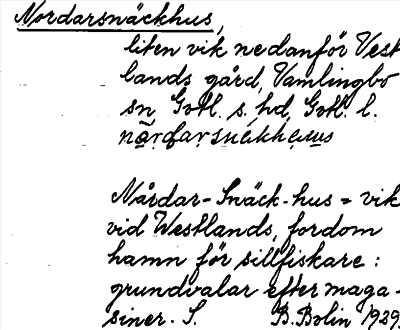 Nordarsnäckhus,
liten vik nedanför Vest
lands gård, Vamlingbo
sn Gotl. s. hd, Gotl. l.
Nårdar-Snäck-hus = vik
vid Westlands, fordom
hamn för sillfiskare:
grundvalar efter maga-
siner. S. B. Bolin 1929